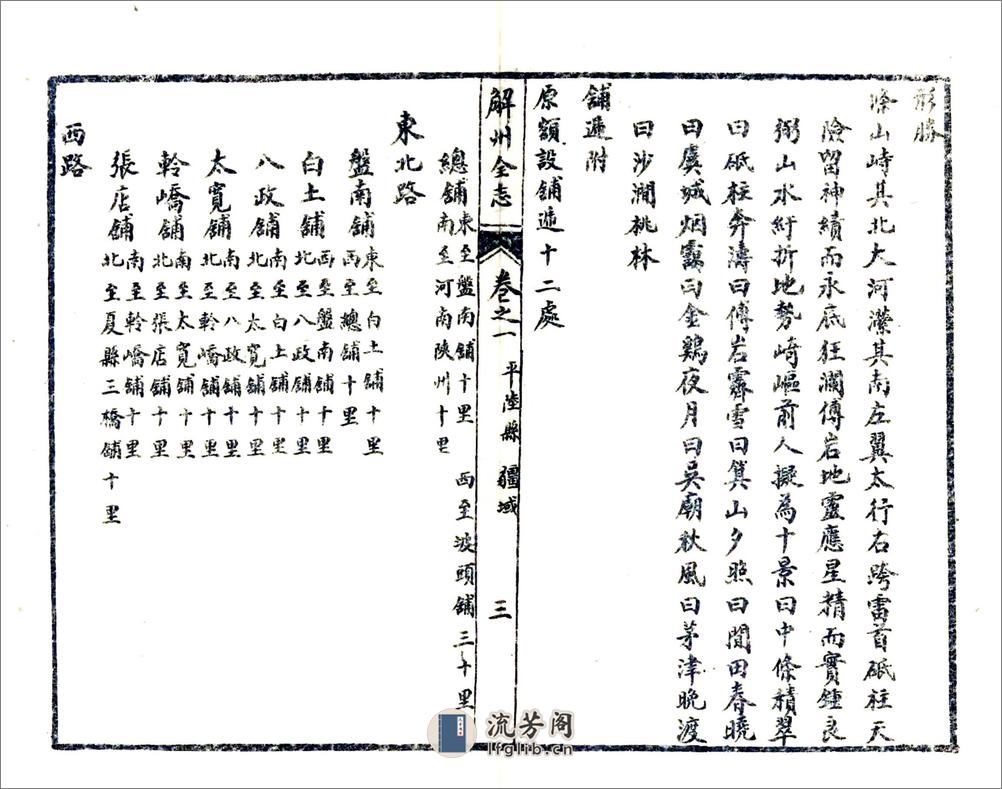 形勝
條山峙其北大河瀠其南左翼太行右跨雷首砥柱天
險留神績而永底狂瀾傅岩地靈應星精而實鍾良
弼山水紆折地勢崎嶇前人擬為十景曰中條積翠
曰砥柱奔濤曰傅岩霽雪曰箕山夕照曰閒田春曉
曰虞城烟靄曰金鷄夜月曰吳廟秋風曰茅津晚渡
曰沙澗桃林
舖遞附
原額設舖遞十二處
解州全志 卷之一 平陸縣 疆域 三
總舖東至盤南舖十里 西至坡頭舖三十里
南至河南陝州十里
東北路
盤南舖東至白土舖十里
西至總舖十里
白土舖西至盤南舖十里
北至八政舖十里
八政舖南至白土舖十里
北至太寬舖十里
太寬舖南至八政舖十里
北至軨嶠舖十里
軨嶠舖南至太寬舖十里
北至張店舖十里
張店舖南至軨嶠舖十里
北至夏縣三橋舖十里
西路
流芳阁
lfglib.cn